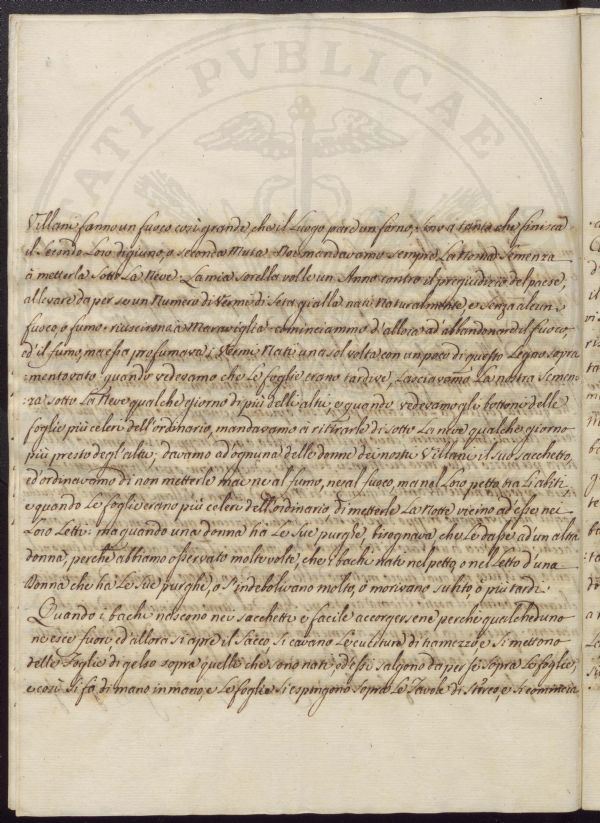 ATI PVBLICAE
Villani fanno un fuoco così grande, che il Luogo pare un forno, sino a tanto che finisca
il Secondo Loro digiuno, o seconda Muta. Noi mandavamo sempre La nostra Semenza
à metterla sotto La Neve. La mia Sorella volle un Anno contro il pregiudizio del paese,
allevare da per se un Numero di Vermi di Seta gialla nati Naturalmente, e senza alcun
fuoco, o fumo: riuscirono a Maraviglia cominciammo d'allora ad abbandonare il fuoco,
ed il fumo, ma essa profumava i Vermi Nati una sol volta con un poco di questo Legno sopra
mentovato: quando vedevamo che Le foglie erano tardive, Lasciavamo La nostra Semen-
za sotto La Neve qualche giorno di più delli altri, e quando vedevamo gli bottoni delle
foglie più celeri dell'ordinario, mandavamo a ritirarle di sotto La neve qualche giorno
più presto degl'altri; davamo ad ognuna delle donne de nostri Villani il suo sacchetto,
ed ordinavamo di non metterle mai ne al fumo, ne al fuoco, ma nel Loro petto tra Li abiti,
e quando Le foglie erano più celeri dell'ordinario di metterle La Notte vicino ad esse nei
Loro Letti: ma quando una donna ha Le Sue purghe, bisognava che Le dasse ad un altra
donna, perche abbiamo osservato molte volte, che i bachi nati nel petto, o nel Letto d'una
Donna che ha Le Sue purghe, o S'indebolivano molto, o morivano subito, ò più tardi.
Quando i bachi nascono nei sacchetti e facile accorgersene perche qualcheduno
ne esce fuori d'allora si apre il Sacco si cavano Le di hamezzo e Si mettono
delle Foglie di gelso sopra quelli che sono nati, ed essi salgono da per se sopra Le foglie,
e così Si fà di mano in mano, e Le foglie Si espingono sopra Le Tavole di Sterco, e Si comincia